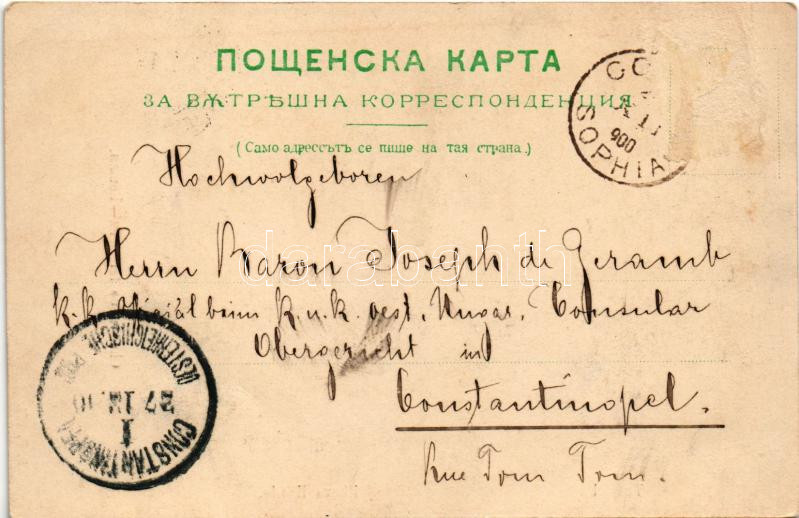 ПОЩЕНСКА КАРТА
ЗА ВѪТРѢШНА КОРРЕСПОНДЕНЦИЯ
(Само адрессътъ се пише на тая страна.)
SOPHIA
900
Hochwolgeboren
Herrn Baron Joseph de Geramb
k.k. Official beim k.u.k. oest. Ungar. Consular
Obergericht in
Constantinopel.
Rue Tom Tom.
CONSTANTINOPEL
I
OESTERREICHISCHE POST
darabanth